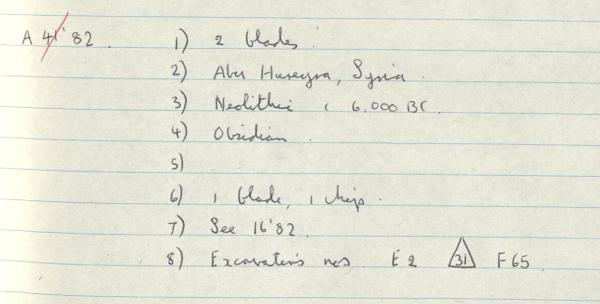 A 41'82. 1) 2 blades.
2) Abu Hureyra, Syria.
3) Neolithic c 6,000 BC.
4) Obsidian.
5)
6) 1 blade, 1 chip.
7) See 16'82.
8) Excavation's nos E2 31 F65.